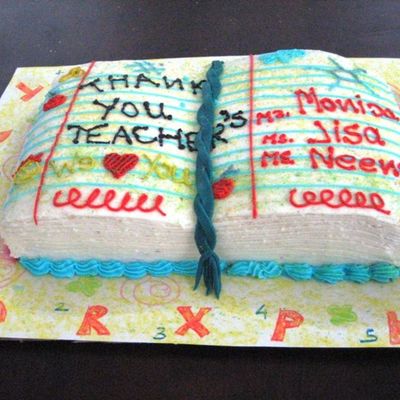 THANK
YOU
TEACHER'S
We ❤ You
Ms. Monisa
Ms. Jisa
Ms. Neem
R X P
2 3 4 5